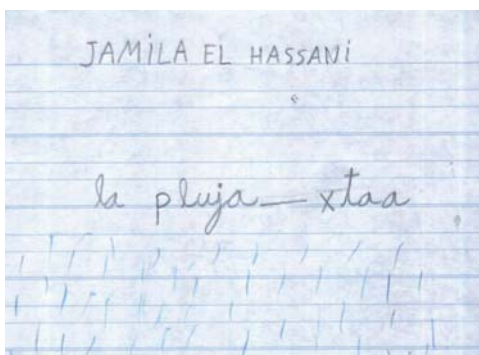 JAMiLA EL HASSANi
la pluja — xtaa